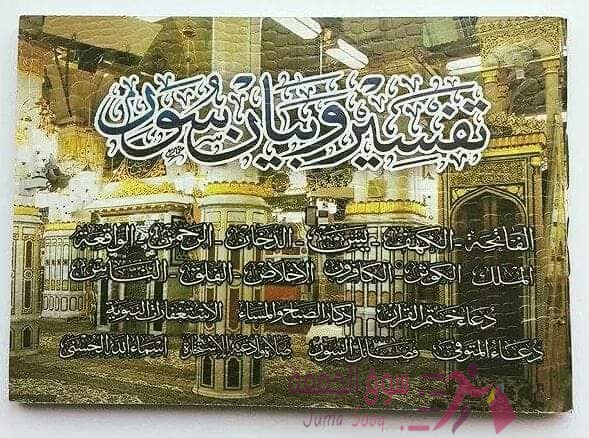 تفسير وبيان سورة
الفاتحة - الكهف - يس - الدخان - الرحمن - الواقعة
الملك - الكوثر - الكافرون - الإخلاص - الفلق - الناس
دعاء ختم القرآن أذكار الصباح والمساء الاستغفارات النبوية
دعاء المتوفي فضائل السور صلاة ودعاء الاستخارة أسماء الله الحسنى
سوق الجمعة
Juma Souq